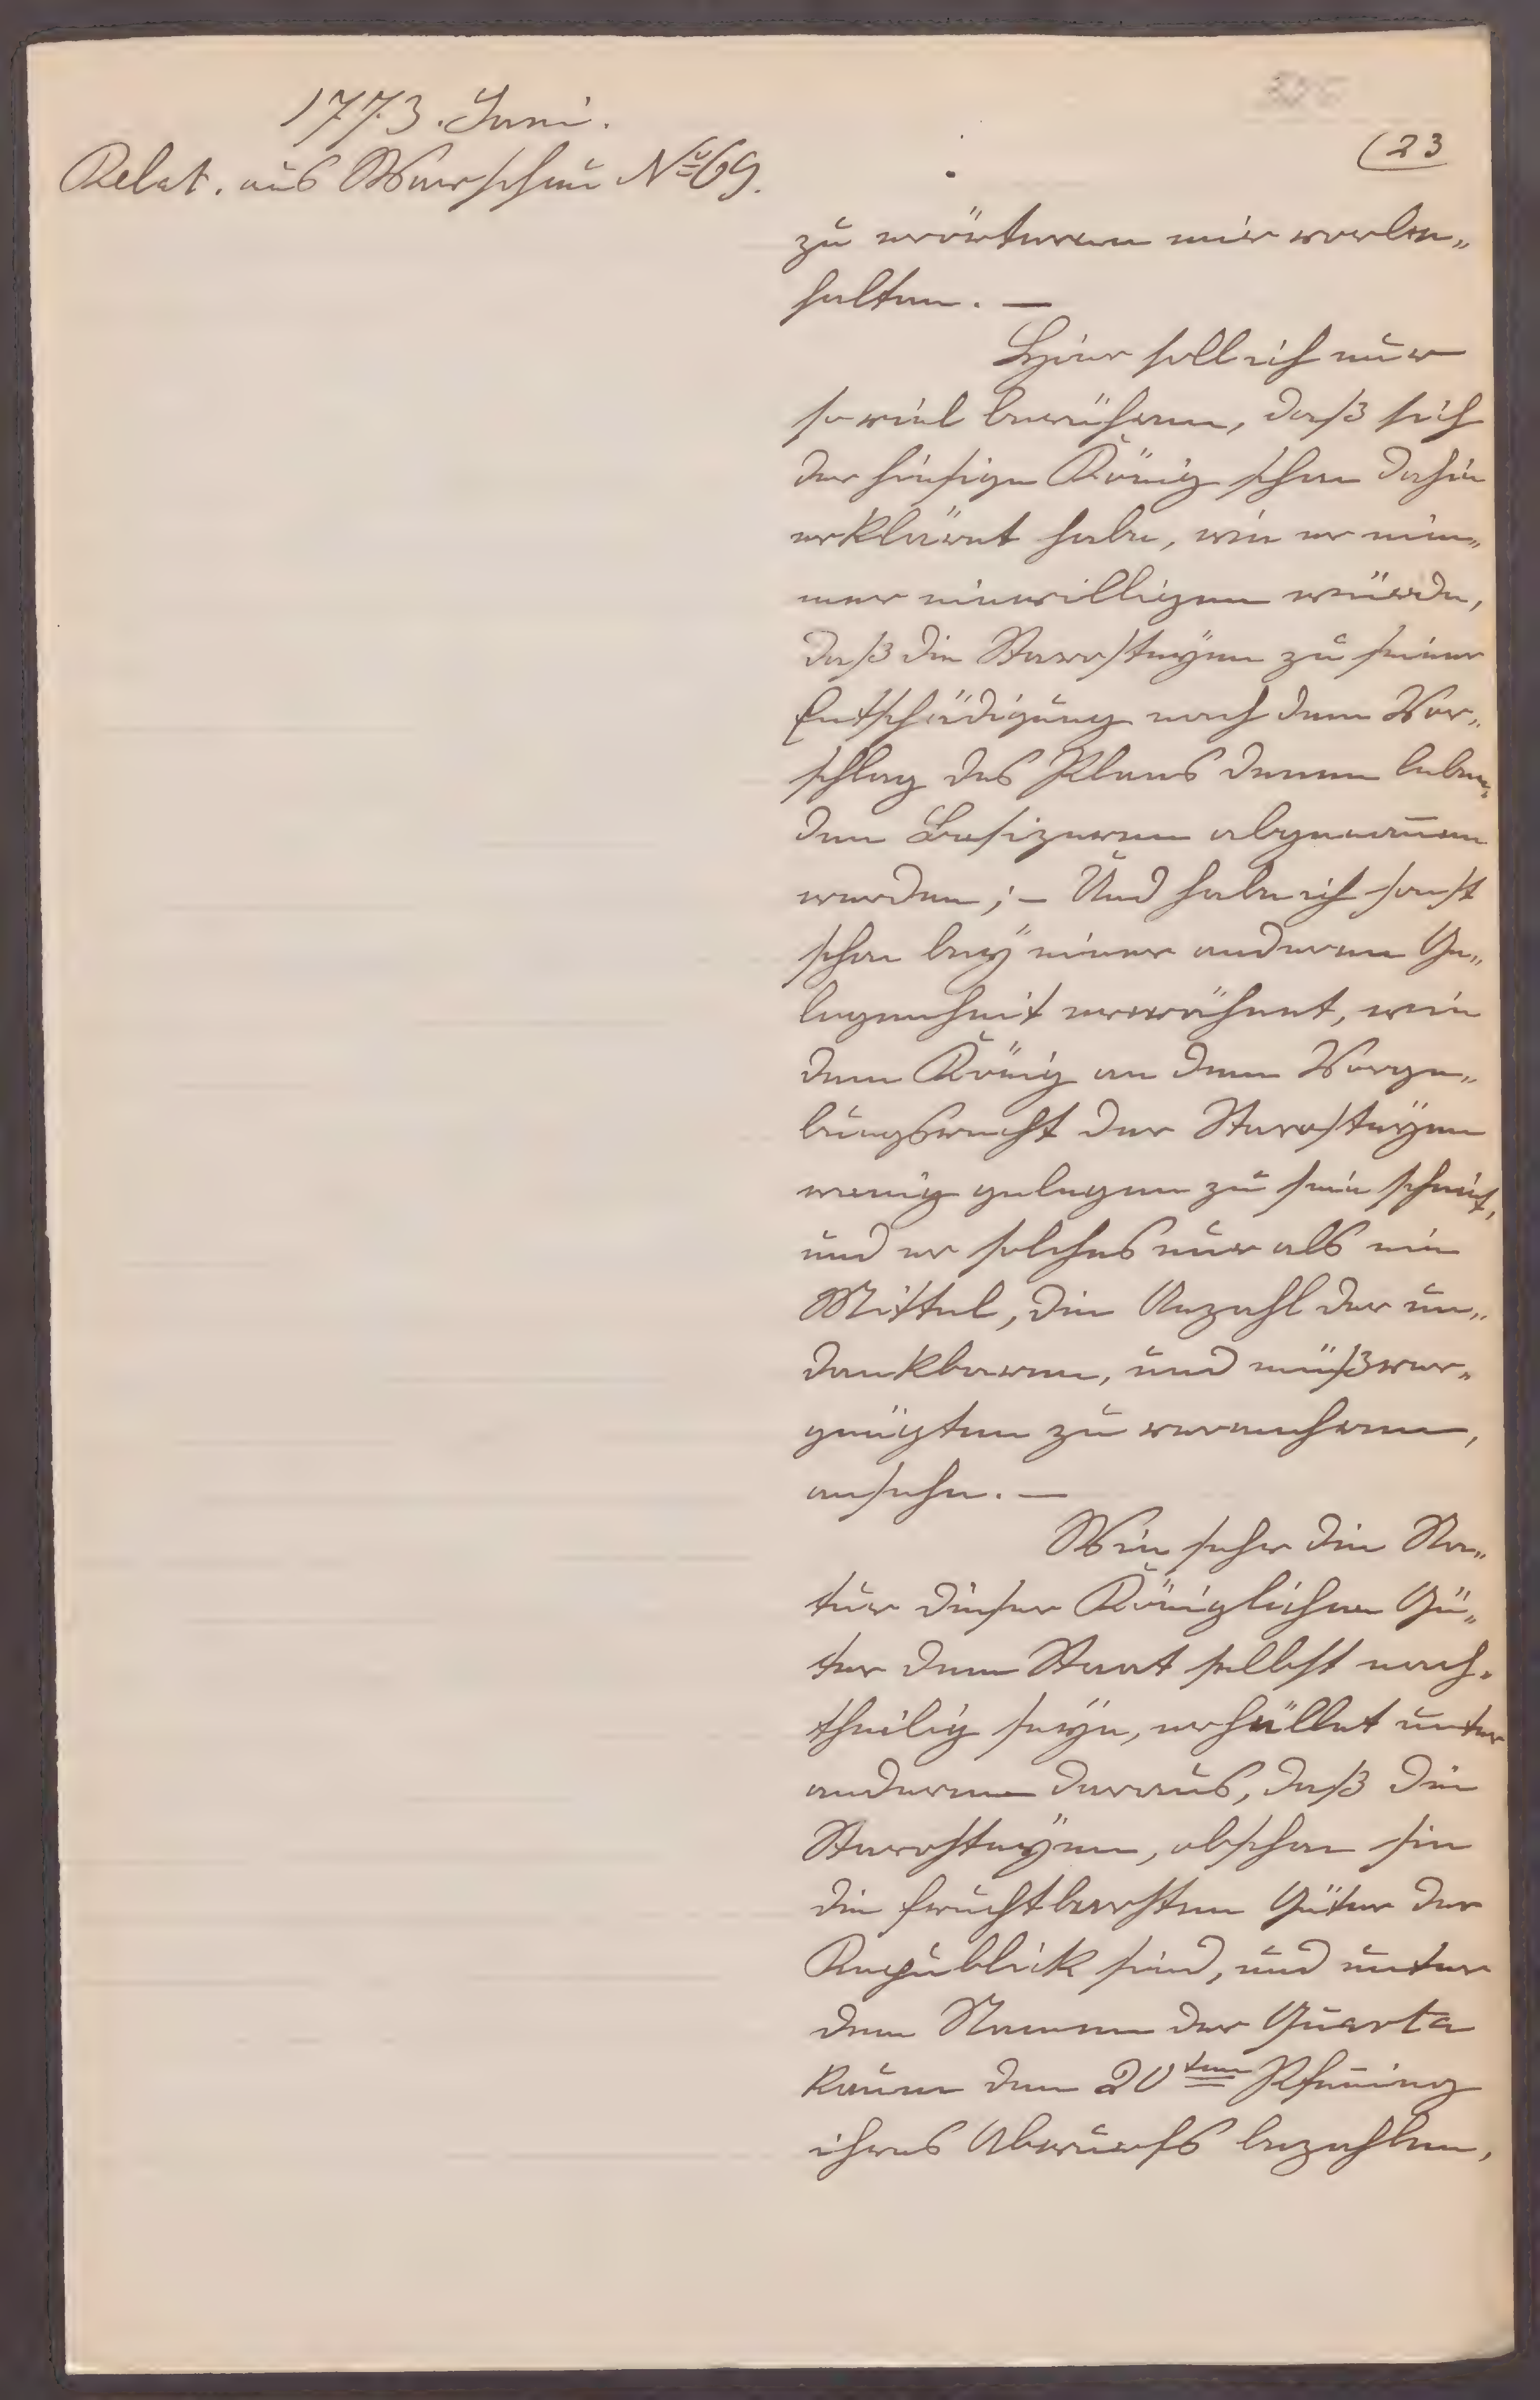 1773. Juni.
Relat. aus Warschau No 69.
(23
zu erörteren mir vorbe„
halten. —
Hier soll ich nur
so viel berühren, daß sich
der hiesige König schon dahin
erkläret habe, wie er nim„
mer einwilligen würde,
daß die Starosteyen zu seiner
Entschädigung nach dem Vor„
schlag des Plans denen leben„
den Besizeren abgenom̄en
werden; – Und habe ich sonst
schon bey einer anderen Ge„
legenheit erwähnet, wie
dem König an dem Verge„
bungsrecht der Starosteyen
wenig gelegen zu sein scheint,
und er solches nur als ein
Mittel, die Anzahl der un„
dankbaren, und mißver„
gnügten zu vermehren,
ansehe. —
Wie sehr die Na„
tur dieser Königlichen Gü„
ter dem Staat selbst nach„
theilig seye, erhället unter
anderen daraus, daß die
Starosteyen, obschon sie
die fruchtbarsten Güter der
Republick sind, und unter
dem Namen der Quarta
kaum den 20ten Pfening
ihres Abwurfs bezahlen,